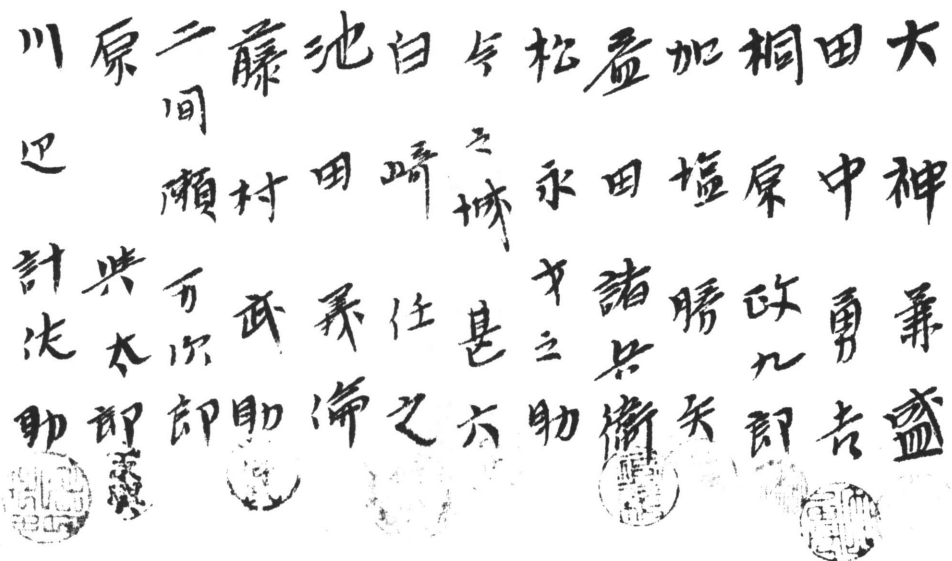 大神兼盛
田中勇吉
桐原政九郎
加塩勝矢
益田諸兵衛
松永才之助
今之城甚六
白崎任之
池田義倫
藤村武助
二间瀬万次郎
原與太郎
川辺計次助